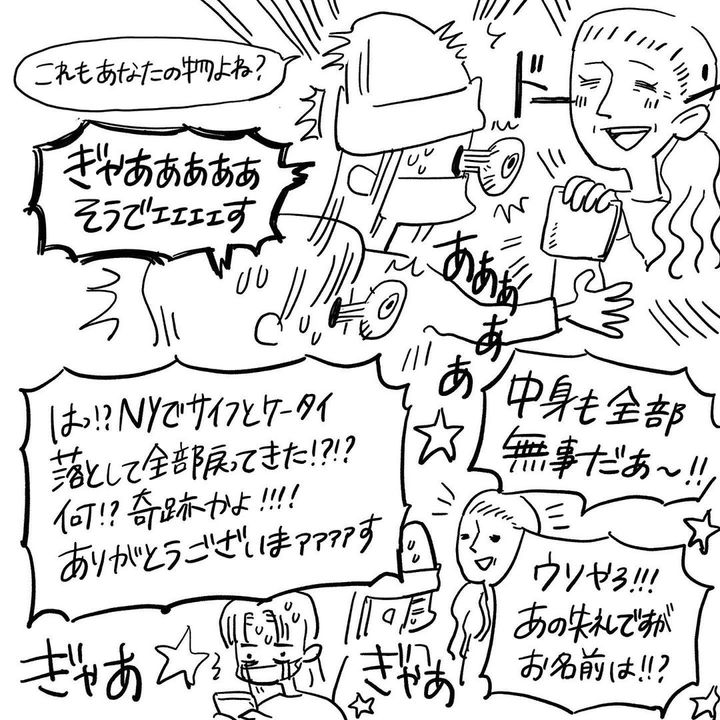 これもあなたの物よね?
ドー
ぎゃあああああ
そうでエエエエす
あああああ
はっ!?NYでサイフとケータイ
落として全部戻ってきた!?!?
何!?奇跡かよ!!!!
ありがとうございまァァァァす
中身も全部
無事だぁ〜!!
ウソやろ!!!
あの失礼ですが
お名前は!!?
ぎゃあ
ぎゃあ